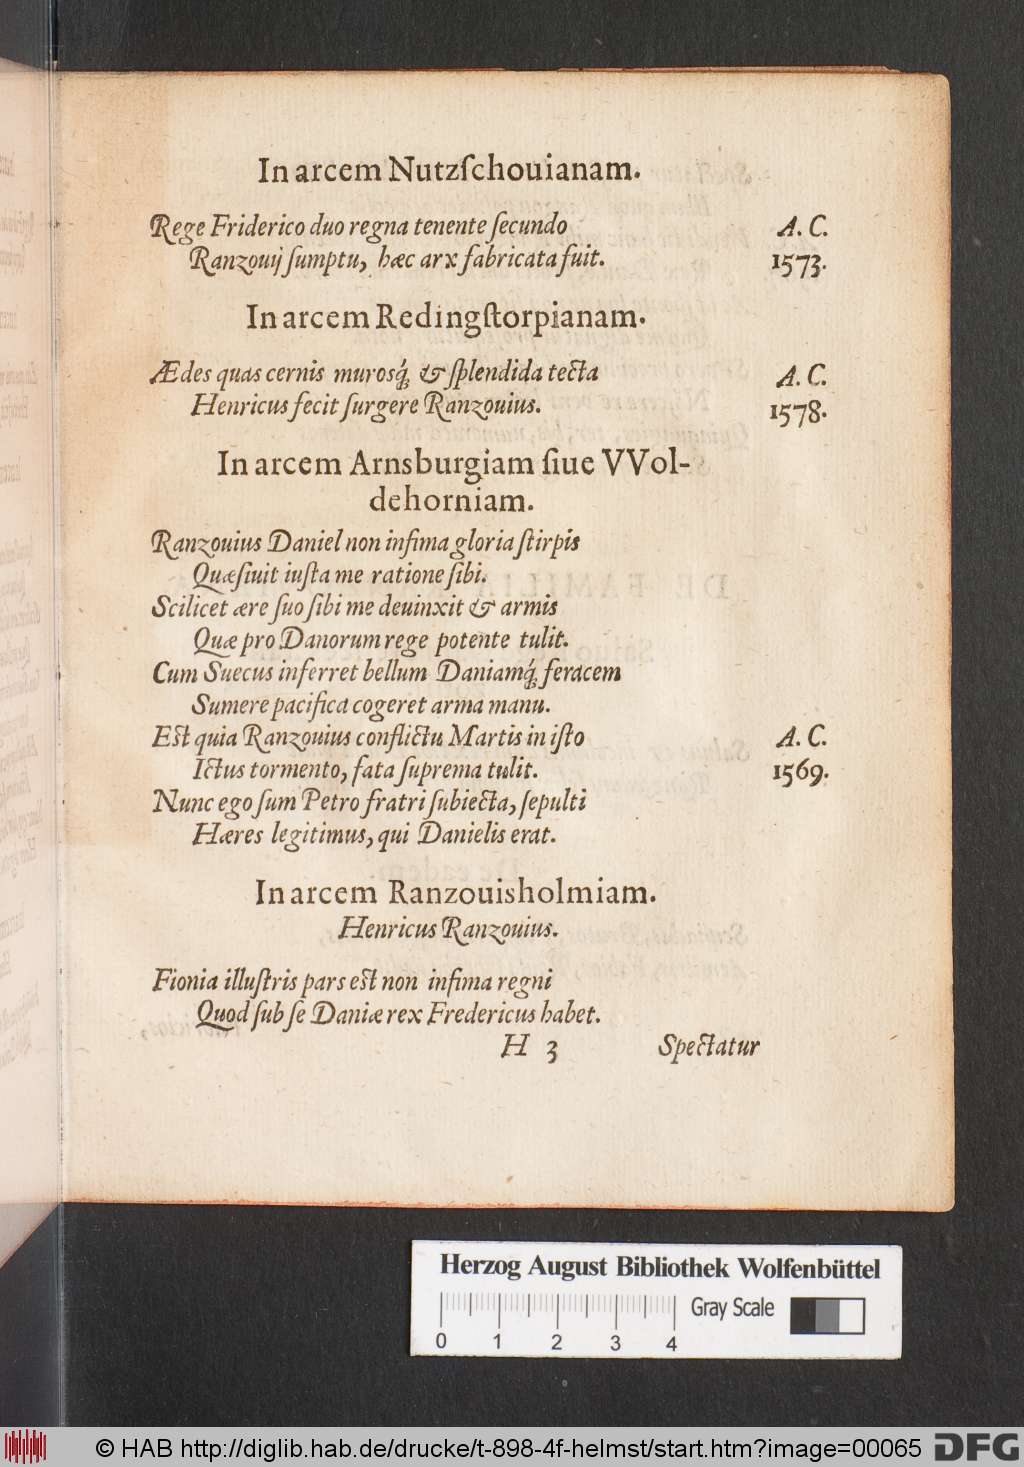 In arcem Nutzſchouianam.
Rege Friderico duo regna tenente ſecundo A. C.
Ranzouij ſumptu, hæc arx fabricata fuit. 1573.
In arcem Redingſtorpianam.
Ædes quas cernis murosq́; & ſplendida tecta A. C.
Henricus fecit ſurgere Ranzouius. 1578.
In arcem Arnsburgiam ſiue VVol-
dehorniam.
Ranzouius Daniel non infima gloria ſtirpis
Quæſiuit iuſta me ratione ſibi.
Scilicet ære ſuo ſibi me deuinxit & armis
Quæ pro Danorum rege potente tulit.
Cum Suecus inferret bellum Daniamq́; feracem
Sumere pacifica cogeret arma manu.
Eſt quia Ranzouius conflictu Martis in iſto A. C.
Ictus tormento, fata ſuprema tulit. 1569.
Nunc ego ſum Petro fratri ſubiecta, ſepulti
Hæres legitimus, qui Danielis erat.
In arcem Ranzouisholmiam.
Henricus Ranzouius.
Fionia illuſtris pars eſt non infima regni
Quod ſub ſe Daniæ rex Fredericus habet.
H 3 Spectatur
Herzog August Bibliothek Wolfenbüttel
Gray Scale
0 1 2 3 4
© HAB http://diglib.hab.de/drucke/t-898-4f-helmst/start.htm?image=00065 DFG